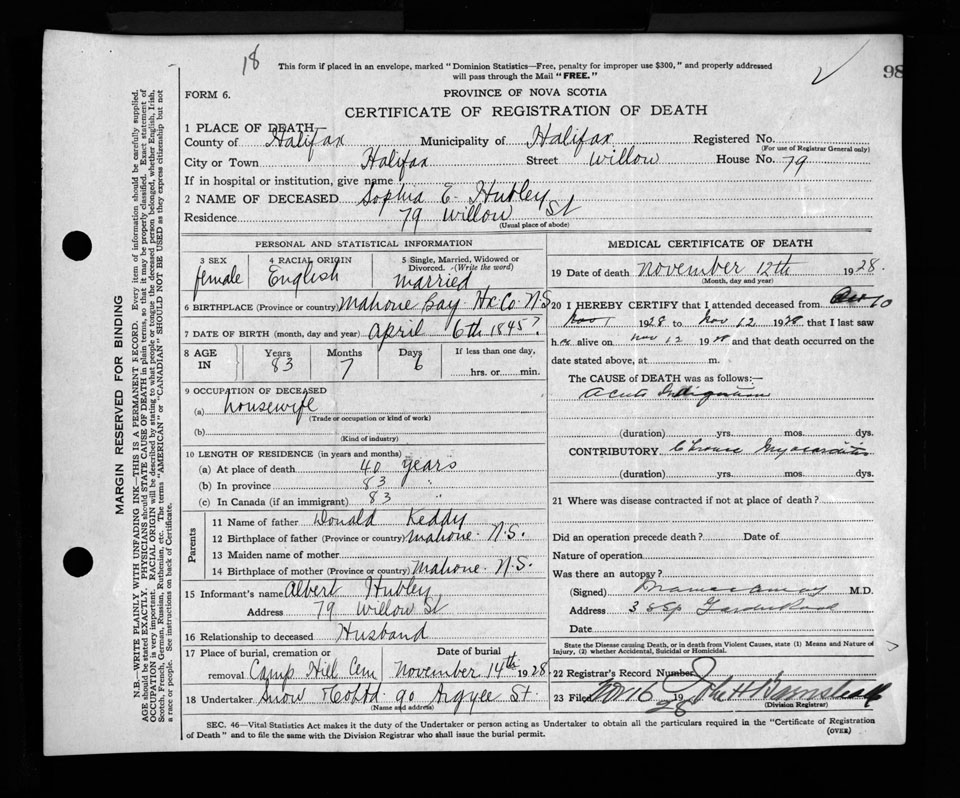 18
This form if placed in an envelope, marked " Dominion Statistics—Free, penalty for improper use $300," and properly addressed
will pass through the Mail "FREE."
98
FORM 6.
PROVINCE OF NOVA SCOTIA
CERTIFICATE OF REGISTRATION OF DEATH
1 PLACE OF DEATH—
County of Halifax Municipality of Halifax Registered No.
(For use of Registrar General only)
City or Town Halifax Street Willow House No. 79
If in hospital or institution, give name
2 NAME OF DECEASED Sophia E. Hubley
Residence 79 Willow St
(Usual place of abode)
PERSONAL AND STATISTICAL INFORMATION
3 SEX
female
4 RACIAL ORIGIN
English
5 Single, Married, Widowed or
Divorced. (Write the word)
Married
6 BIRTHPLACE (Province or country) Mahone Bay Hx Co. N.S
7 DATE OF BIRTH (month, day and year) April 6th 1845?
8 AGE IN
Years 83
Months 7
Days 6
If less than one day,
hrs. or min.
9 OCCUPATION OF DECEASED
(a) housewife
(Trade or occupation or kind of work)
(b)
(Kind of industry)
10 LENGTH OF RESIDENCE (in years and months)
(a) At place of death 40 years
(b) In province 83 "
(c) In Canada (if an immigrant) 83 "
Parents
11 Name of father Donald Keddy
12 Birthplace of father (Province or country) Mahone N.S.
13 Maiden name of mother
14 Birthplace of mother (Province or country) Mahone N.S.
15 Informant's name Albert Hubley
Address 79 Willow St
16 Relationship to deceased Husband
17 Place of burial, cremation or
removal Camp Hill Cem
Date of burial
November 14th 1928
18 Undertaker Snow & Co Ltd 90 Argyle St.
(Name and address)
MEDICAL CERTIFICATE OF DEATH
19 Date of death November 12th 1928.
(Month, day and year)
20 I HEREBY CERTIFY that I attended deceased from
Nov 1 1928 to Nov 12 1928 that I last saw
h er alive on Nov 12 1928 and that death occurred on the
date stated above, at m.
The CAUSE of DEATH was as follows:—
Acute Indigestion
(duration) yrs. mos. dys.
CONTRIBUTORY Chronic Myocarditis
(duration) yrs. mos. dys.
21 Where was disease contracted if not at place of death?
Did an operation precede death? Date of
Nature of operation
Was there an autopsy?
(Signed) M.D.
Address
Date
State the Disease causing Death, or in death from Violent Causes, state (1) Means and Nature of
Injury, (2) whether Accidental, Suicidal or Homicidal.
22 Registrar's Record Number
23 Filed Nov 16 1928 John H Barnstead
(Division Registrar)
SEC. 46—Vital Statistics Act makes it the duty of the Undertaker or person acting as Undertaker to obtain all the particulars required in the "Certificate of Registration
of Death" and to file the same with the Division Registrar who shall issue the burial permit.
(OVER)
MARGIN RESERVED FOR BINDING
N.B.—WRITE PLAINLY WITH UNFADING INK—THIS IS A PERMANENT RECORD. Every item of information should be carefully supplied.
AGE should be stated EXACTLY. PHYSICIANS should STATE CAUSE OF DEATH in plain terms, so that it may be properly classified. Exact statement of
OCCUPATION is very important. RACIAL ORIGIN will be described by stating to what people or tongue the deceased person belonged, whether English, Irish,
Scotch, French, German, Russian, Ruthenian, etc. The terms "AMERICAN" or "CANADIAN" SHOULD NOT BE USED as they express citizenship but not
a race or people. See instructions on back of Certificate.